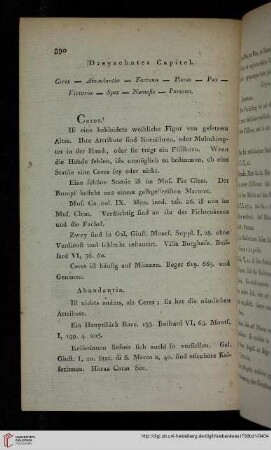 390
Dreyzehntes Capitel.
Ceres — Abundantia — Fortuna — Pietas — Pax —
Victoria — Spes — Nemesis — Parcae.
Ceres.
Ist eine bekleidete weibliche Figur von gesetztem
Alter. Ihre Attribute sind Kornähren, oder Mohnhäup-
ter in der Hand, oder sie trägt ein Füllhorn. Wenn
die Hände fehlen, ists unmöglich zu bestimmen, ob eine
Statue eine Ceres sey oder nicht.
Eine solche Statue ist im Mus. Pio Clem. Der
Rumpf besteht aus einem Marmor.
Mus. Cap. IX. Mon. ined. tab. 26. ist nun im
Mus. Clem. Verdächtig sind an ihr der Fichtenkranz
und die Fackel.
Zwey sind in Gal. Giust. Montf. Suppl. I, 25. ohne
Verdienst und schlecht restaurirt. Villa Borghese. Bois-
sard VI, 36. 60.
Ceres ist häufig auf Münzen. Beger 619. 665. und
Gemmen.
Abundantia.
Ist nichts anders, als Ceres; sie hat die nämlichen
Attribute.
Ein Hauptstück Racc. 135. Boissard VI, 63. Montf.
I, 199. 4. 205.
Kaiserinnen liessen sich auch so vorstellen. Gal.
Giust. I, 20. Stat. di S. Marco 2, 40. sind offenbare Kai-
serinnen. Horae Ceres Sec.
UNIVERSITÄTS-
BIBLIOTHEK
HEIDELBERG